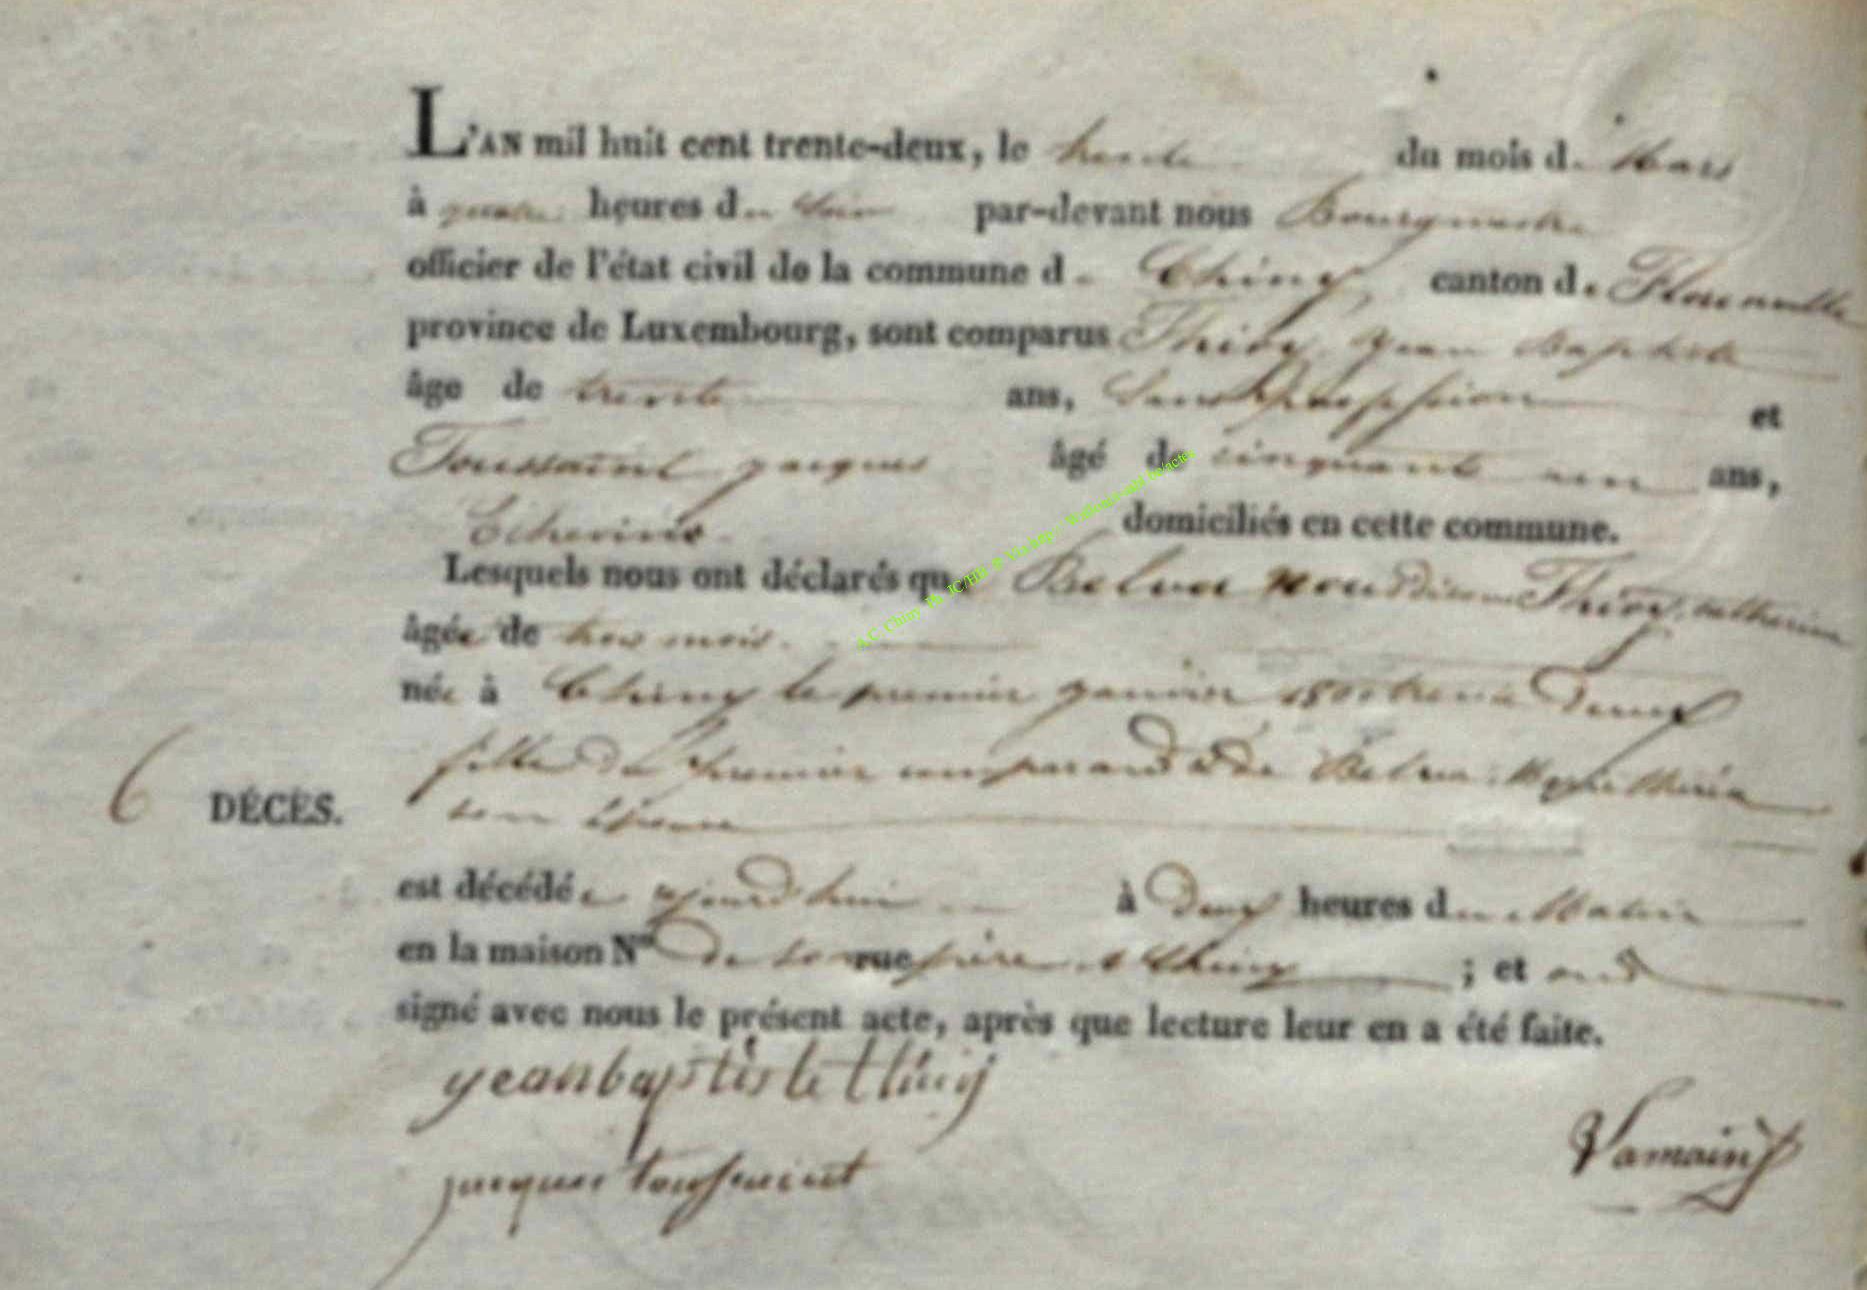 L'AN mil huit cent trente-deux, le trente du mois de Mars
à quatre heures du Soir par-devant nous Bourgmestre
officier de l'état civil de la commune de Chiny canton de Florenville
province de Luxembourg, sont comparus Thiry Jean Baptiste
âge de trente ans, Sans Proffession et
Toussaint Jacques âgé de cinquante un ans,
Echevins domiciliés en cette commune.
Lesquels nous ont déclarés que Thiry Catherine
âgée de trois mois
née à Chiny le premier Janvier trente Deux
fille du premier comparant et de
son Epouse
6 DÉCÈS.
est décédée à Deux heures du Matin
en la maison Nº de son rue père à Chiny ; et ont
signé avec nous le présent acte, après que lecture leur en a été faite.
jean baptiste thiry
jacques toussaint